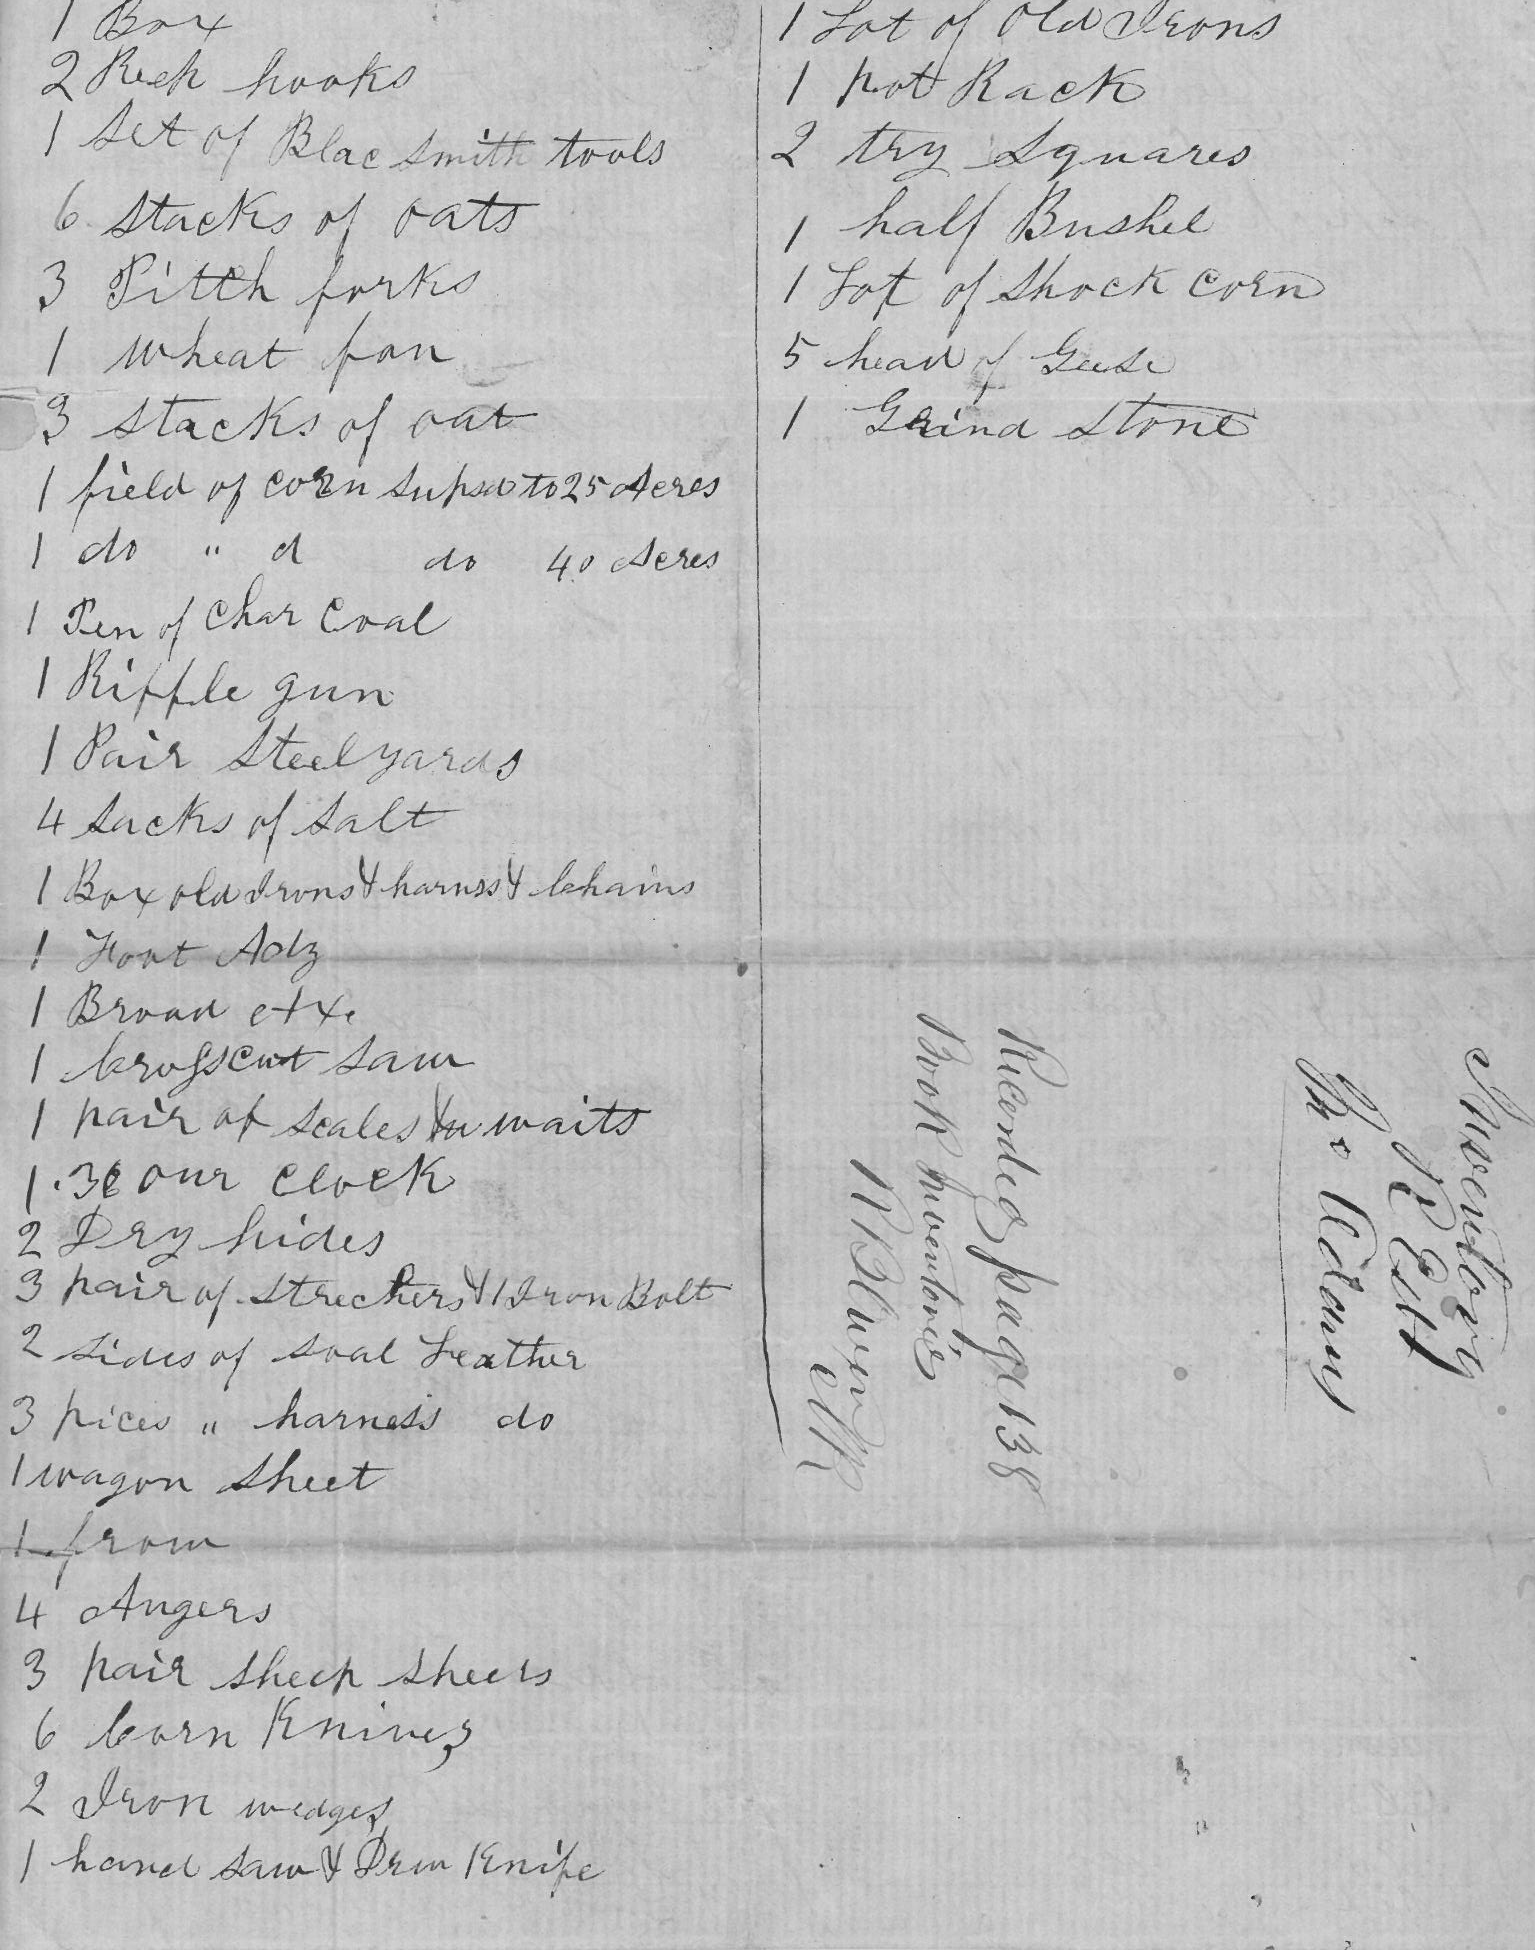 1 Box
2 Reep hooks
1 Set of Blac Smith tools
6 Stacks of oats
3 Pitch forks
1 Wheat fan
3 Stacks of oat
1 field of corn Supsd to 25 Acres
1 do " d do 40 Acres
1 Pen of Char Coal
1 Riffle gun
1 Pair Steelyards
4 Sacks of Salt
1 Box old Irons & harnss & Chains
1 Foot Adz
1 Broad Axe
1 Crosscut Saw
1 pair of Scales & waits
1 30 our Clock
2 Dry hides
3 pair of Strechers & 1 Iron Bolt
2 Sides of Soal Leather
3 pices " harness do
1 wagon Sheet
1 from
4 Augers
3 pair Sheep Sheers
6 Corn Knives
2 Iron wedges
1 hand Saw & Drw Knife
1 Lot of Old Irons
1 pot Rack
2 try Squares
1 half Bushel
1 Lot of Shock Corn
5 head of Geese
1 Grind Stone
Inventory
J P
Adams
Recorded page 138
Book Inventories